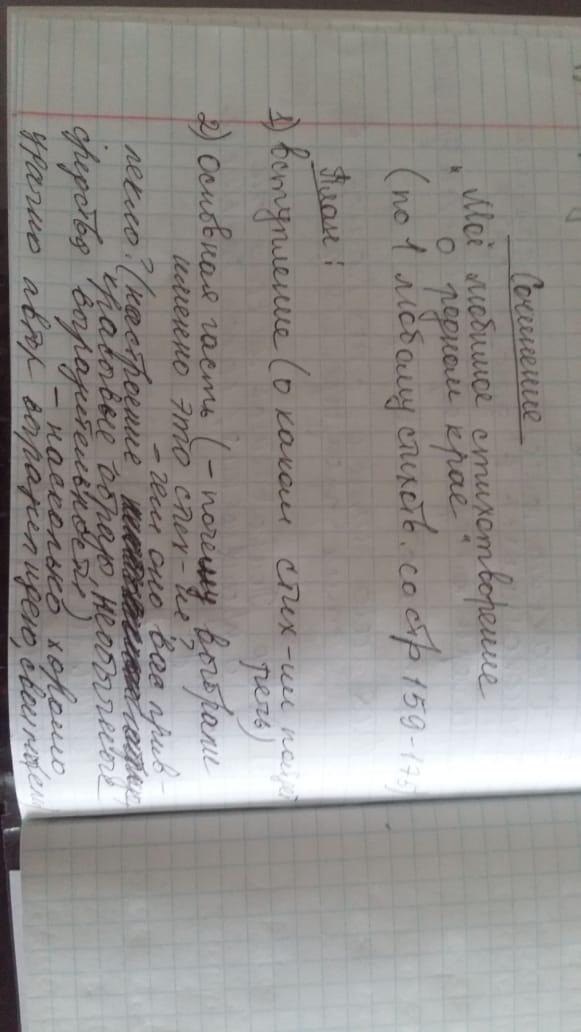 Сочинение
"Моё любимое стихотворение
о родном крае"
(по 1 любому стихотв. со стр 159-175)
План:
1) вступление (о каком стих-ии пойдёт
речь)
2) основная часть (- почему выбрали
именно это стих-ие?
- чем оно вас прив-
лекло? (настроение
красовые образы необычные
средства выразительности)
- насколько хорошо
удачно автор выразил идею, свои